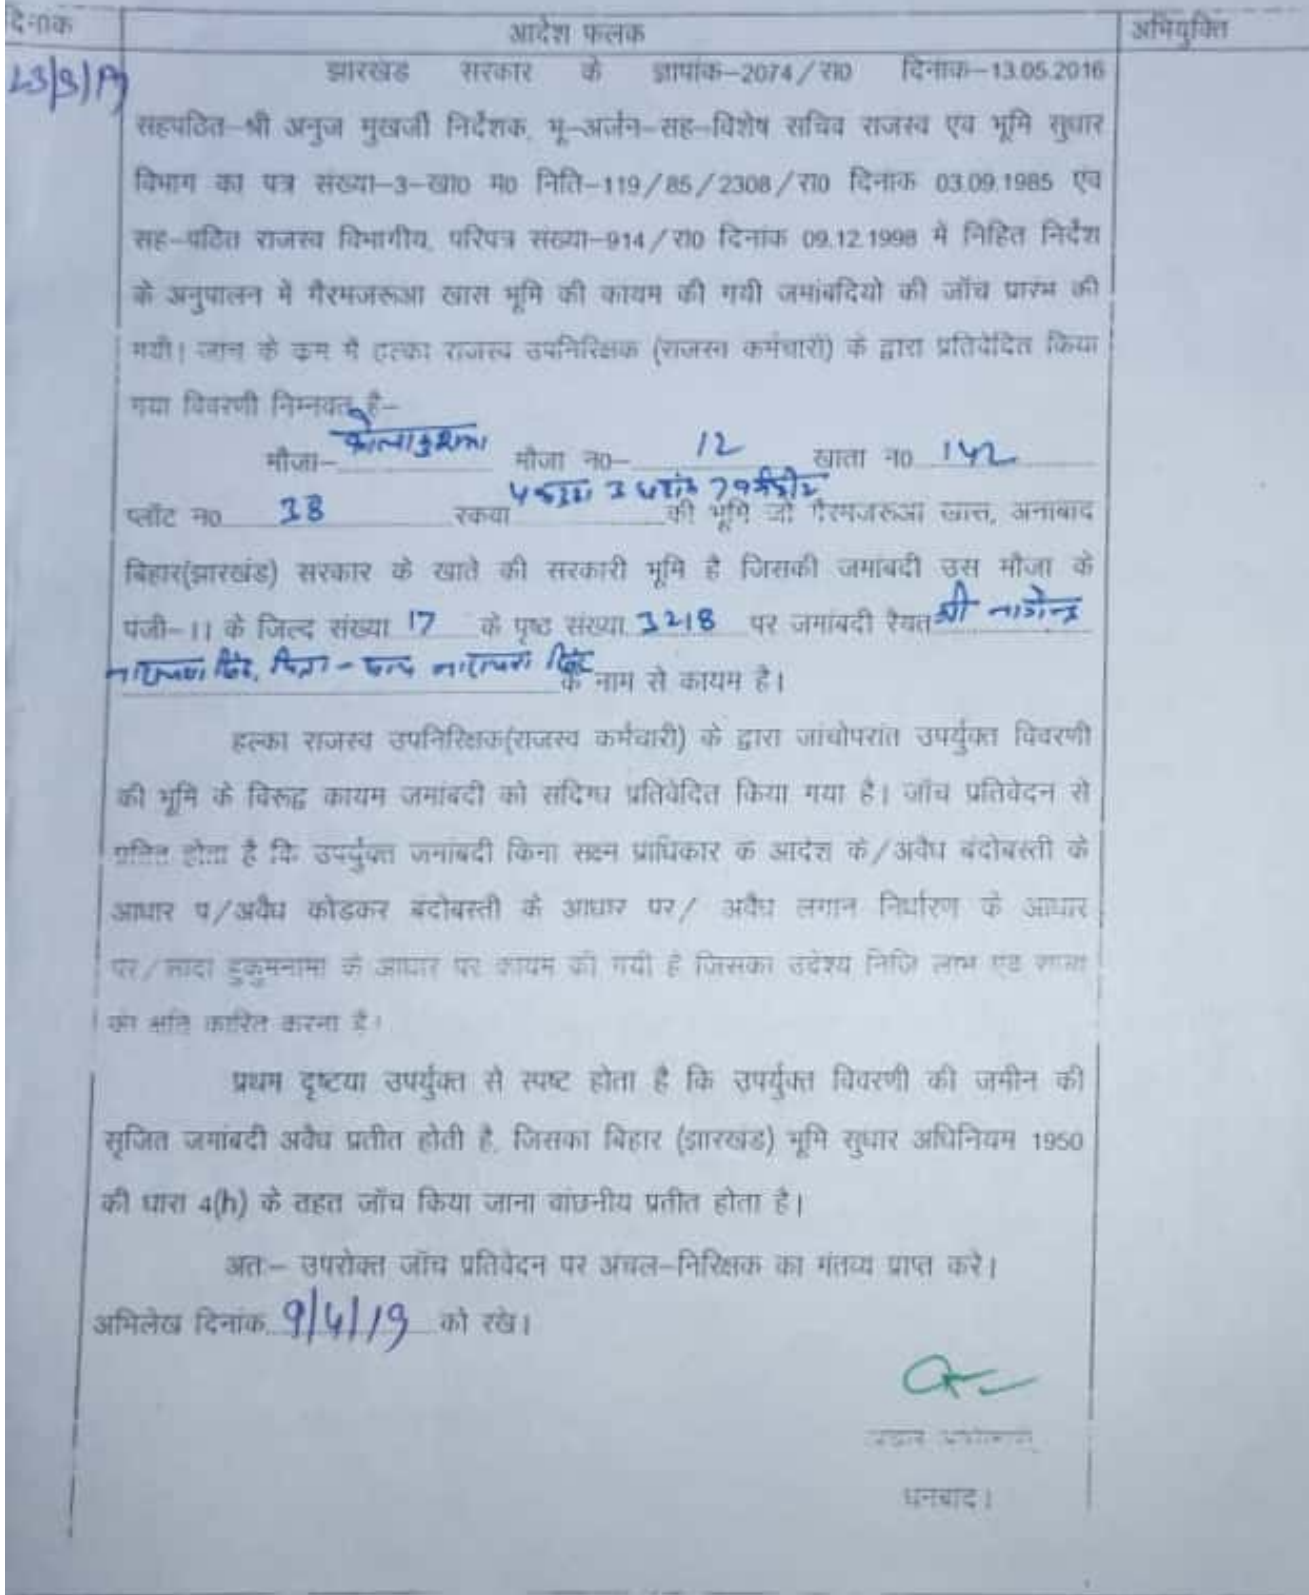 दिनांक आदेश फलक अभियुक्ति
23/3/19 झारखंड सरकार के ज्ञापांक-2074/रा0 दिनांक-13.05.2016
सहपठित-श्री अनुज मुखर्जी निर्देशक, भू-अर्जन-सह-विशेष सचिव राजस्व एवं भूमि सुधार
विभाग का पत्र संख्या-3-खा0 म0 निति-119/85/2308/रा0 दिनांक 03.09.1985 एवं
सह-पठित राजस्व विभागीय, परिपत्र संख्या-914/रा0 दिनांक 09.12.1998 में निहित निर्देश
के अनुपालन में गैरमजरूआ खास भूमि की कायम की गयी जमांबदियो की जॉच प्रारंभ की
गयी। जाच के क्रम में हल्का राजस्व उपनिरिक्षक (राजस्व कर्मचारी) के द्वारा प्रतिवेदित किया
गया विवरणी निम्नवत है-
मौजा- कोलाकुशमा मौजा न0- 12 खाता न0 142
प्लॉट न0 38 रकवा की भूमि जो गैरमजरूआ खास, अनाबाद
बिहार(झारखंड) सरकार के खाते की सरकारी भूमि है जिसकी जमांबदी उस मौजा के
पंजी-11 के जिल्द संख्या 17 के पृष्ठ संख्या 3218 पर जमांबदी रैयत श्री नागेन्द्र
नारायण सिंह, पिता - नारायण सिंह के नाम से कायम है।
हल्का राजस्व उपनिरिक्षक(राजस्व कर्मचारी) के द्वारा जांचोपरांत उपर्युक्त विवरणी
की भूमि के विरूद्ध कायम जमांबदी को संदिग्ध प्रतिवेदित किया गया है। जॉच प्रतिवेदन से
प्रतित होता है कि उपर्युक्त जमांबदी बिना सक्ष्म प्राधिकार के आदेश के/अवैध बंदोबस्ती के
आधार प/अवैध कोडकर बंदोबस्ती के आधार पर/ अवैध लगान निर्धारण के आधार
पर/सादा हुकुमनामा के आधार पर कायम की गयी है जिसका उदेश्य निजि लाभ एवं
को क्षति कारित करना है।
प्रथम दृष्टया उपर्युक्त से स्पष्ट होता है कि उपर्युक्त विवरणी की जमीन की
सृजित जमांबदी अवैध प्रतीत होती है, जिसका बिहार (झारखंड) भूमि सुधार अधिनियम 1950
की धारा 4(h) के तहत जॉच किया जाना वांछनीय प्रतीत होता है।
अतः- उपरोक्त जॉच प्रतिवेदन पर अंचल-निरिक्षक का मंतव्य प्राप्त करे।
अभिलेख दिनांक 9/4/19 को रखे।
धनबाद।